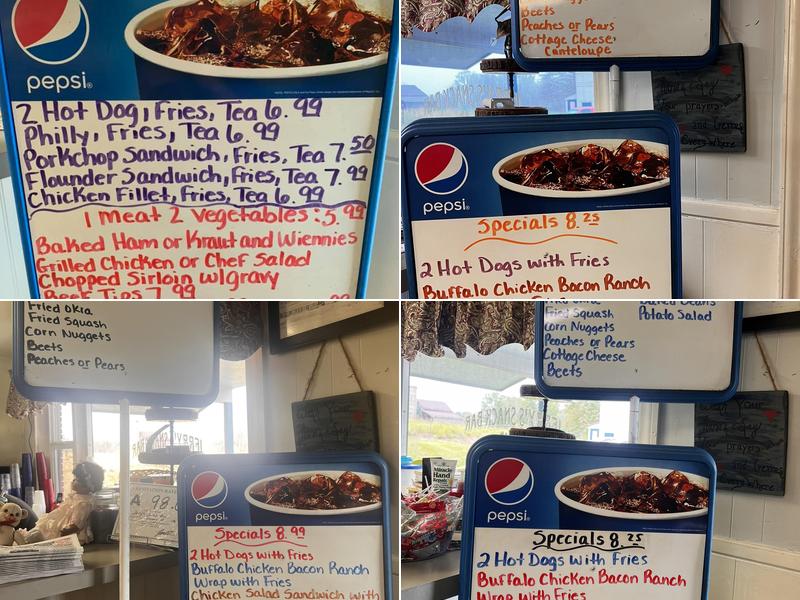 pepsi®
2 Hot Dog, Fries, Tea 6.99
Philly, Fries, Tea 6.99
Porkchop Sandwich, Fries, Tea 7.50
Flounder Sandwich, Fries, Tea 7.99
Chicken Fillet, Fries, Tea 6.99
1 meat 2 vegetables : 5.99
Baked Ham or Kraut and Wiennies
Grilled Chicken or Chef Salad
Chopped Sirloin w/gravy
Beef Tips 7.99
Beets
Peaches or Pears
Cottage Cheese,
Canteloupe
your prayers
and Germs
everywhere
SNACK BAR
pepsi®
Specials 8.25
2 Hot Dogs with Fries
Buffalo Chicken Bacon Ranch
Fried Okra
Fried Squash
Corn Nuggets
Beets
Peaches or Pears
Wash Your
pepsi®
Specials 8.99
2 Hot Dogs with Fries
Buffalo Chicken Bacon Ranch
Wrap with Fries
Chicken Salad Sandwich with
Fried Okra
Baked Beans
Fried Squash
Potato Salad
Corn Nuggets
Peaches or Pears
Cottage Cheese
Beets
JERRY'S SNACK BAR
Wash Your
prayers
and Germs
everywhere
Miracle
Hand
Repair
pepsi®
Specials 8.25
2 Hot Dogs with Fries
Buffalo Chicken Bacon Ranch
Wrap with Fries